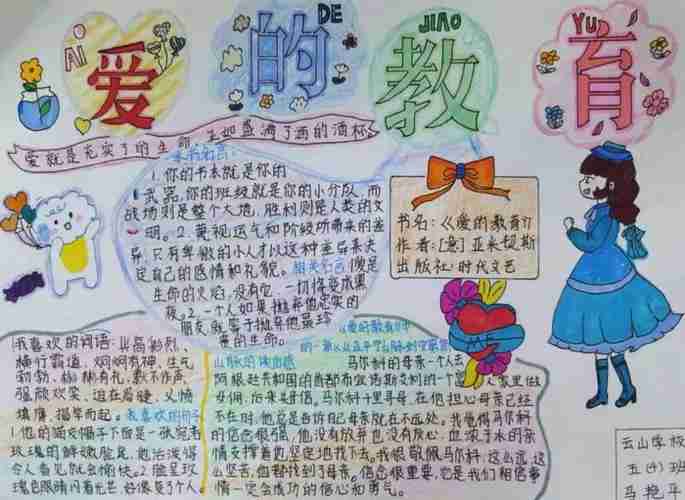 AI
DE
JIAO
YU
爱的教育
爱就是充实了的生命,正如盛满了酒的酒杯
1.你的书本就是你的
武器,你的班级就是你的小分队,而
战场则是整个大地,胜利则是人类的文
明。2.蔑视运气和阶级所带来的差
异,只有卑微的小人才以这种差异来决
定自己的感情和礼貌。相关名言:爱是
生命的火焰,没有它,一切将变成黑
夜。2.一个人如果抛弃他忠实的
朋友,就等于抛弃他最珍
贵的生命。
书名:《爱的教育》
作者:[意]亚米契斯
出版社:时代文艺
我喜欢的词语:
横行霸道、炯炯有神、生气
勃勃、彬彬有礼、默不作声
强颜欢笑、迫在眉睫、义愤
填膺、揭竿而起。我喜欢的句子
1.他的猫皮帽子下面是一张宛若
玫瑰的鲜嫩脸庞,他活泼得
令人看见就会愉快。2.脸呈玫
瑰色眼睛闪着光芒,好像变了个人。
《爱的教育》中
马尔科的母亲一个人去
阿根廷共和国的首都布宜诺斯艾利斯的一个富人家里做
女佣,后来没音信。马尔科千里寻母,在他担心母亲已经
不在时,他总是告诉自己母亲就在不远处。我觉得马尔科
的信念很强,他没有放弃也没有灰心,血浓于水的亲
情支撑着他坚定地找下去。我很敬佩马尔科,这么远,这
么坚苦,但都找到了母亲。信念很重要,它是我们相信事
情一定会成功的信心和勇气。
云山学校
五(4)班
马艳平